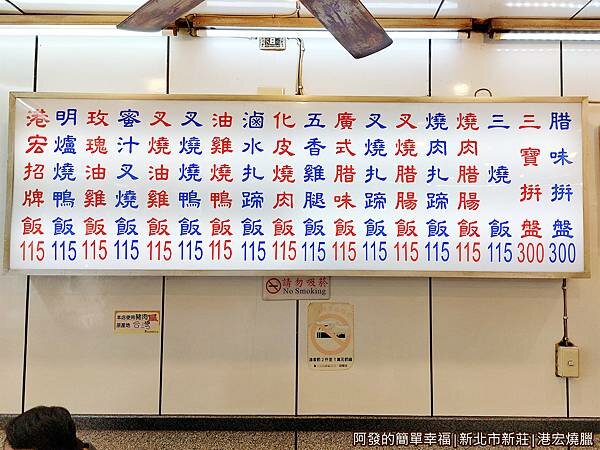 港宏招牌飯 115
明爐燒鴨飯 115
玫瑰油雞飯 115
蜜汁叉燒飯 115
叉燒油雞飯 115
叉燒燒鴨飯 115
油雞燒鴨飯 115
滷水扎蹄飯 115
化皮燒肉飯 115
五香雞腿飯 115
廣式腊味飯 115
叉燒扎蹄飯 115
叉燒腊腸飯 115
燒肉扎蹄飯 115
燒肉腊腸飯 115
三燒飯 115
三寶拼盤 300
腊味拼盤 300
請勿吸菸
No Smoking
本店使用豬肉
原產地 台灣
阿發的簡單幸福|新北市新莊|港宏燒臘